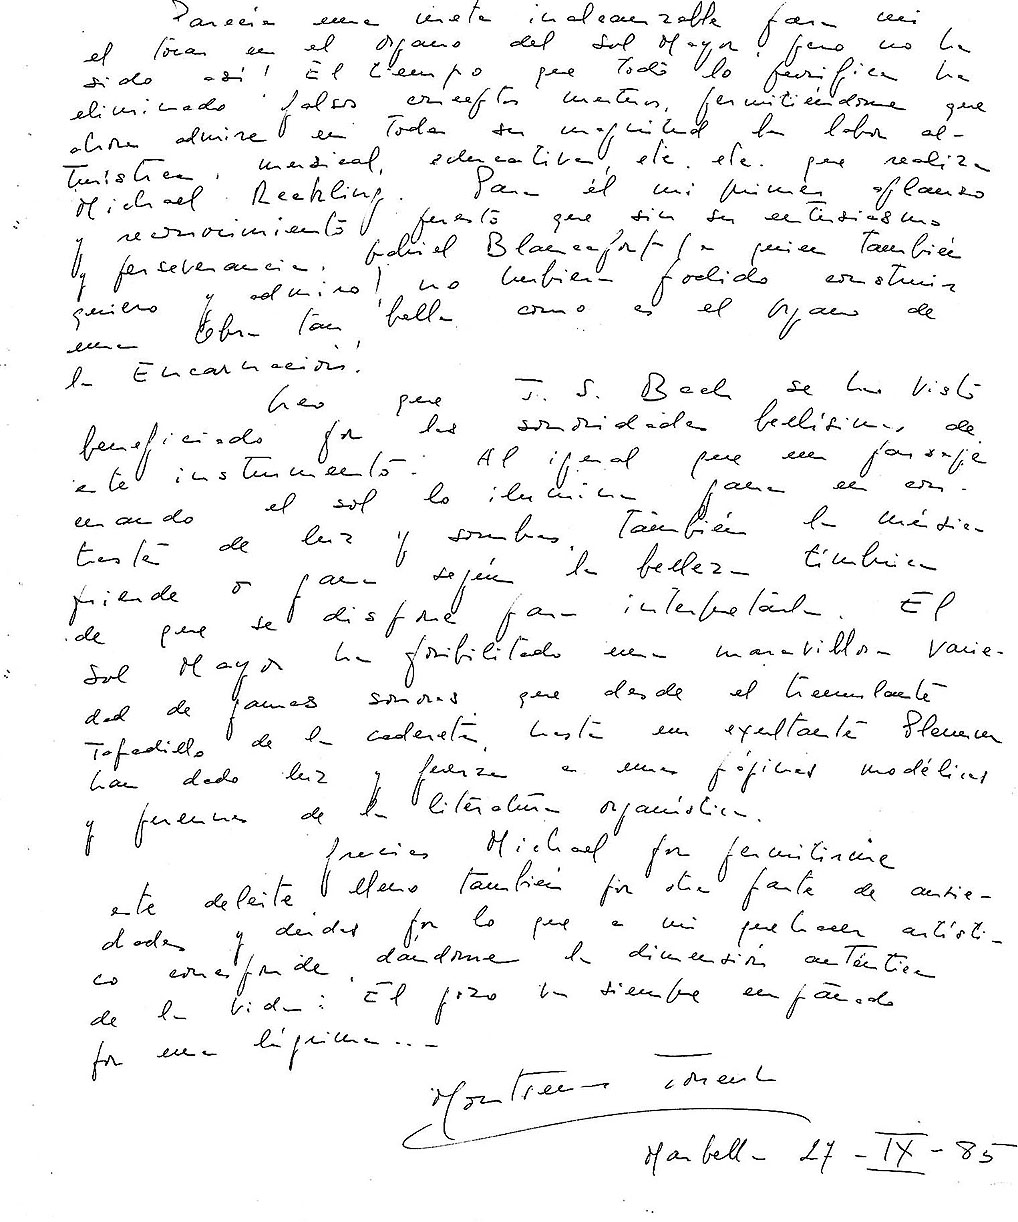 Parecía una meta inalcanzable para mi
el tocar en el órgano del Sol Mayor! pero no ha
sido así! El tiempo que todo lo purifica ha
eliminado falsos conceptos mutuos, permitiéndome que
ahora admire en toda su magnitud la labor al-
turística, musical, educativa, etc. etc. que realiza
Michael Reckling. Para él mi primer aplauso
y reconocimiento puesto que sin su entusiasmo
y perseverancia, Gabriel Blancafort (a quien también
quiero y admiro! no hubiera podido construir
una Obra tan bella como es el órgano de
la Encarnación!
Creo que J. S. Bach se ha visto
beneficiado por las sonoridades bellísimas de
este instrumento. Al igual que en un paisaje
cuando el sol lo ilumina para en con-
traste de luz y sombras, también la música
pierde o gana según la belleza tímbrica
de que se dispone para interpretarla. El
Sol Mayor ha posibilitado una maravillosa varie-
dad de gamas sonoras que desde el tremulante
Tapadillo de la cadereta, hasta un exultante Plenum
han dado luz y fuerza a unas páginas modélicas
y perennes de la literatura organística.
Gracias Michael por permitirme
este deleite lleno también por otra parte de ansie-
dades y dudas por lo que a mi quehacer artísti-
co corresponde, dándome la dimensión auténtica
de la vida: El gozo va siempre empañado
por una lágrima...
Montserrat Torrent
Marbella 27 - IX - 85